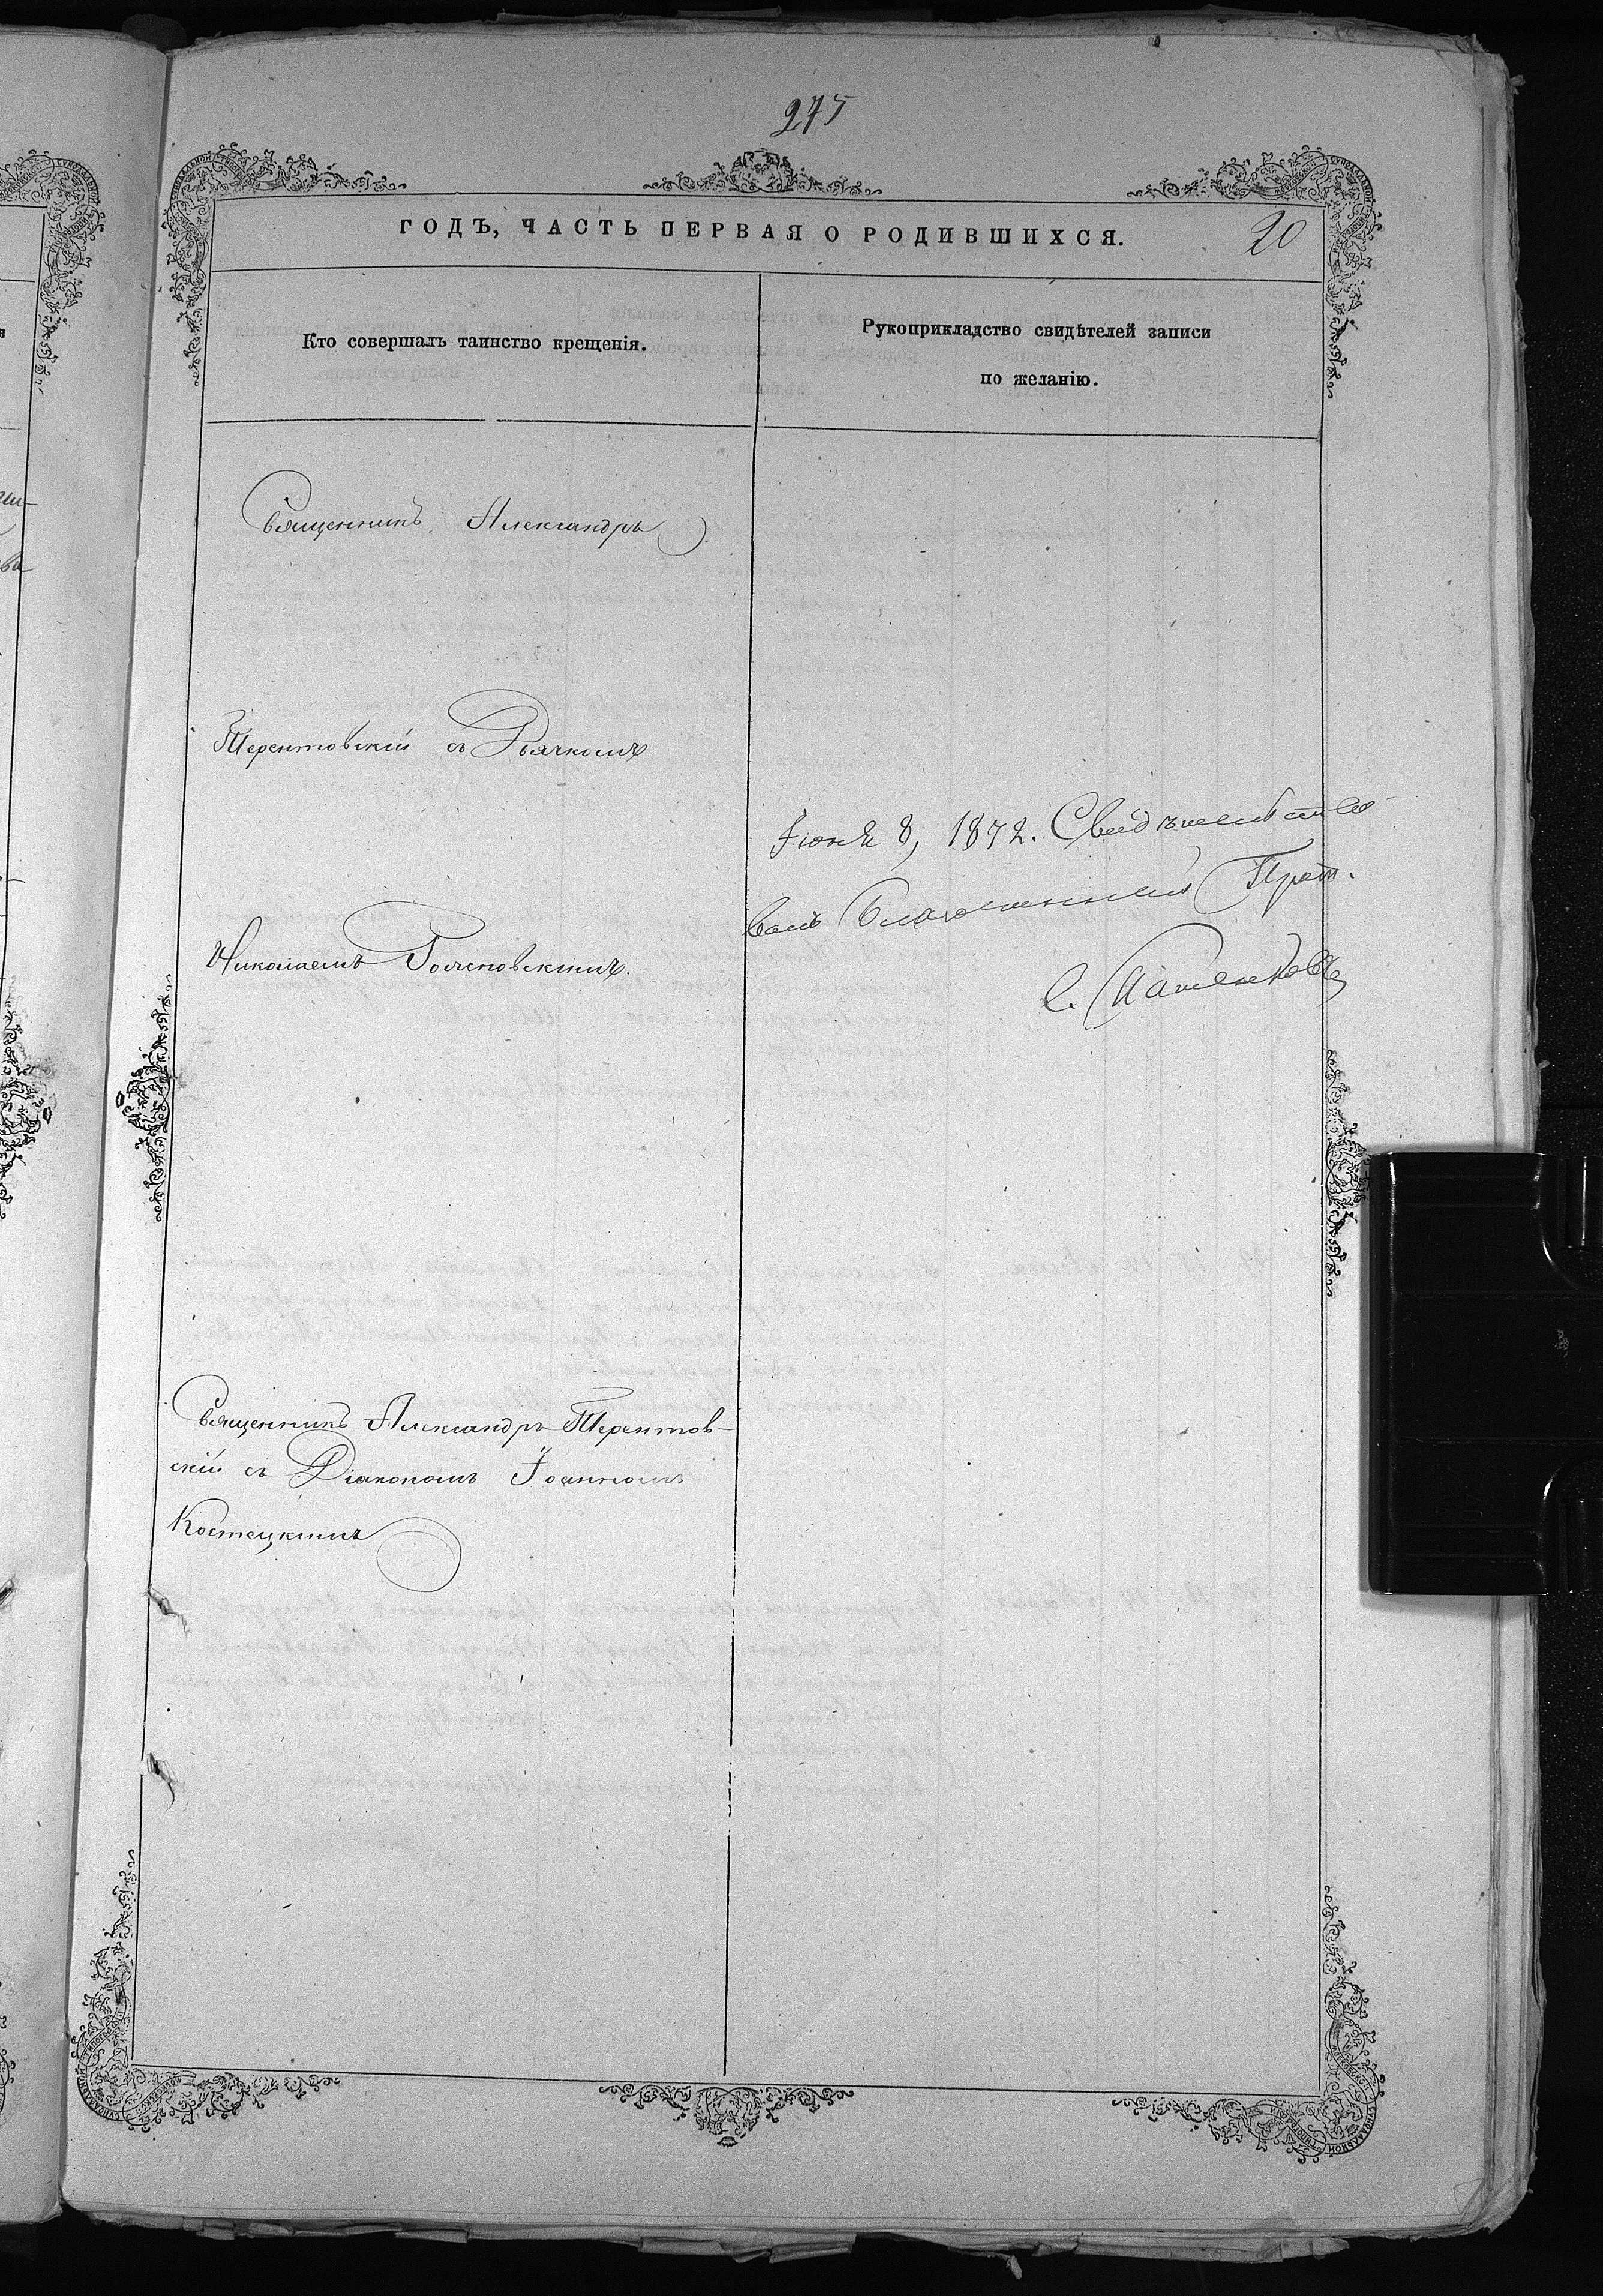 275
ГОДЪ, ЧАСТЬ ПЕРВАЯ О РОДИВШИХСЯ.
20
Кто совершалъ таинство крещенія.
Рукоприкладство свидѣтелей записи
по желанію.
Священникъ Александръ
Терентовскій съ Дьячкомъ
Николаемъ
Іюня 8, 1872. Свидѣтельство
валъ Благочинный Прот.
С.
Священникъ Александръ Терентов-
скій съ Діакономъ Іоанномъ
Костецкимъ